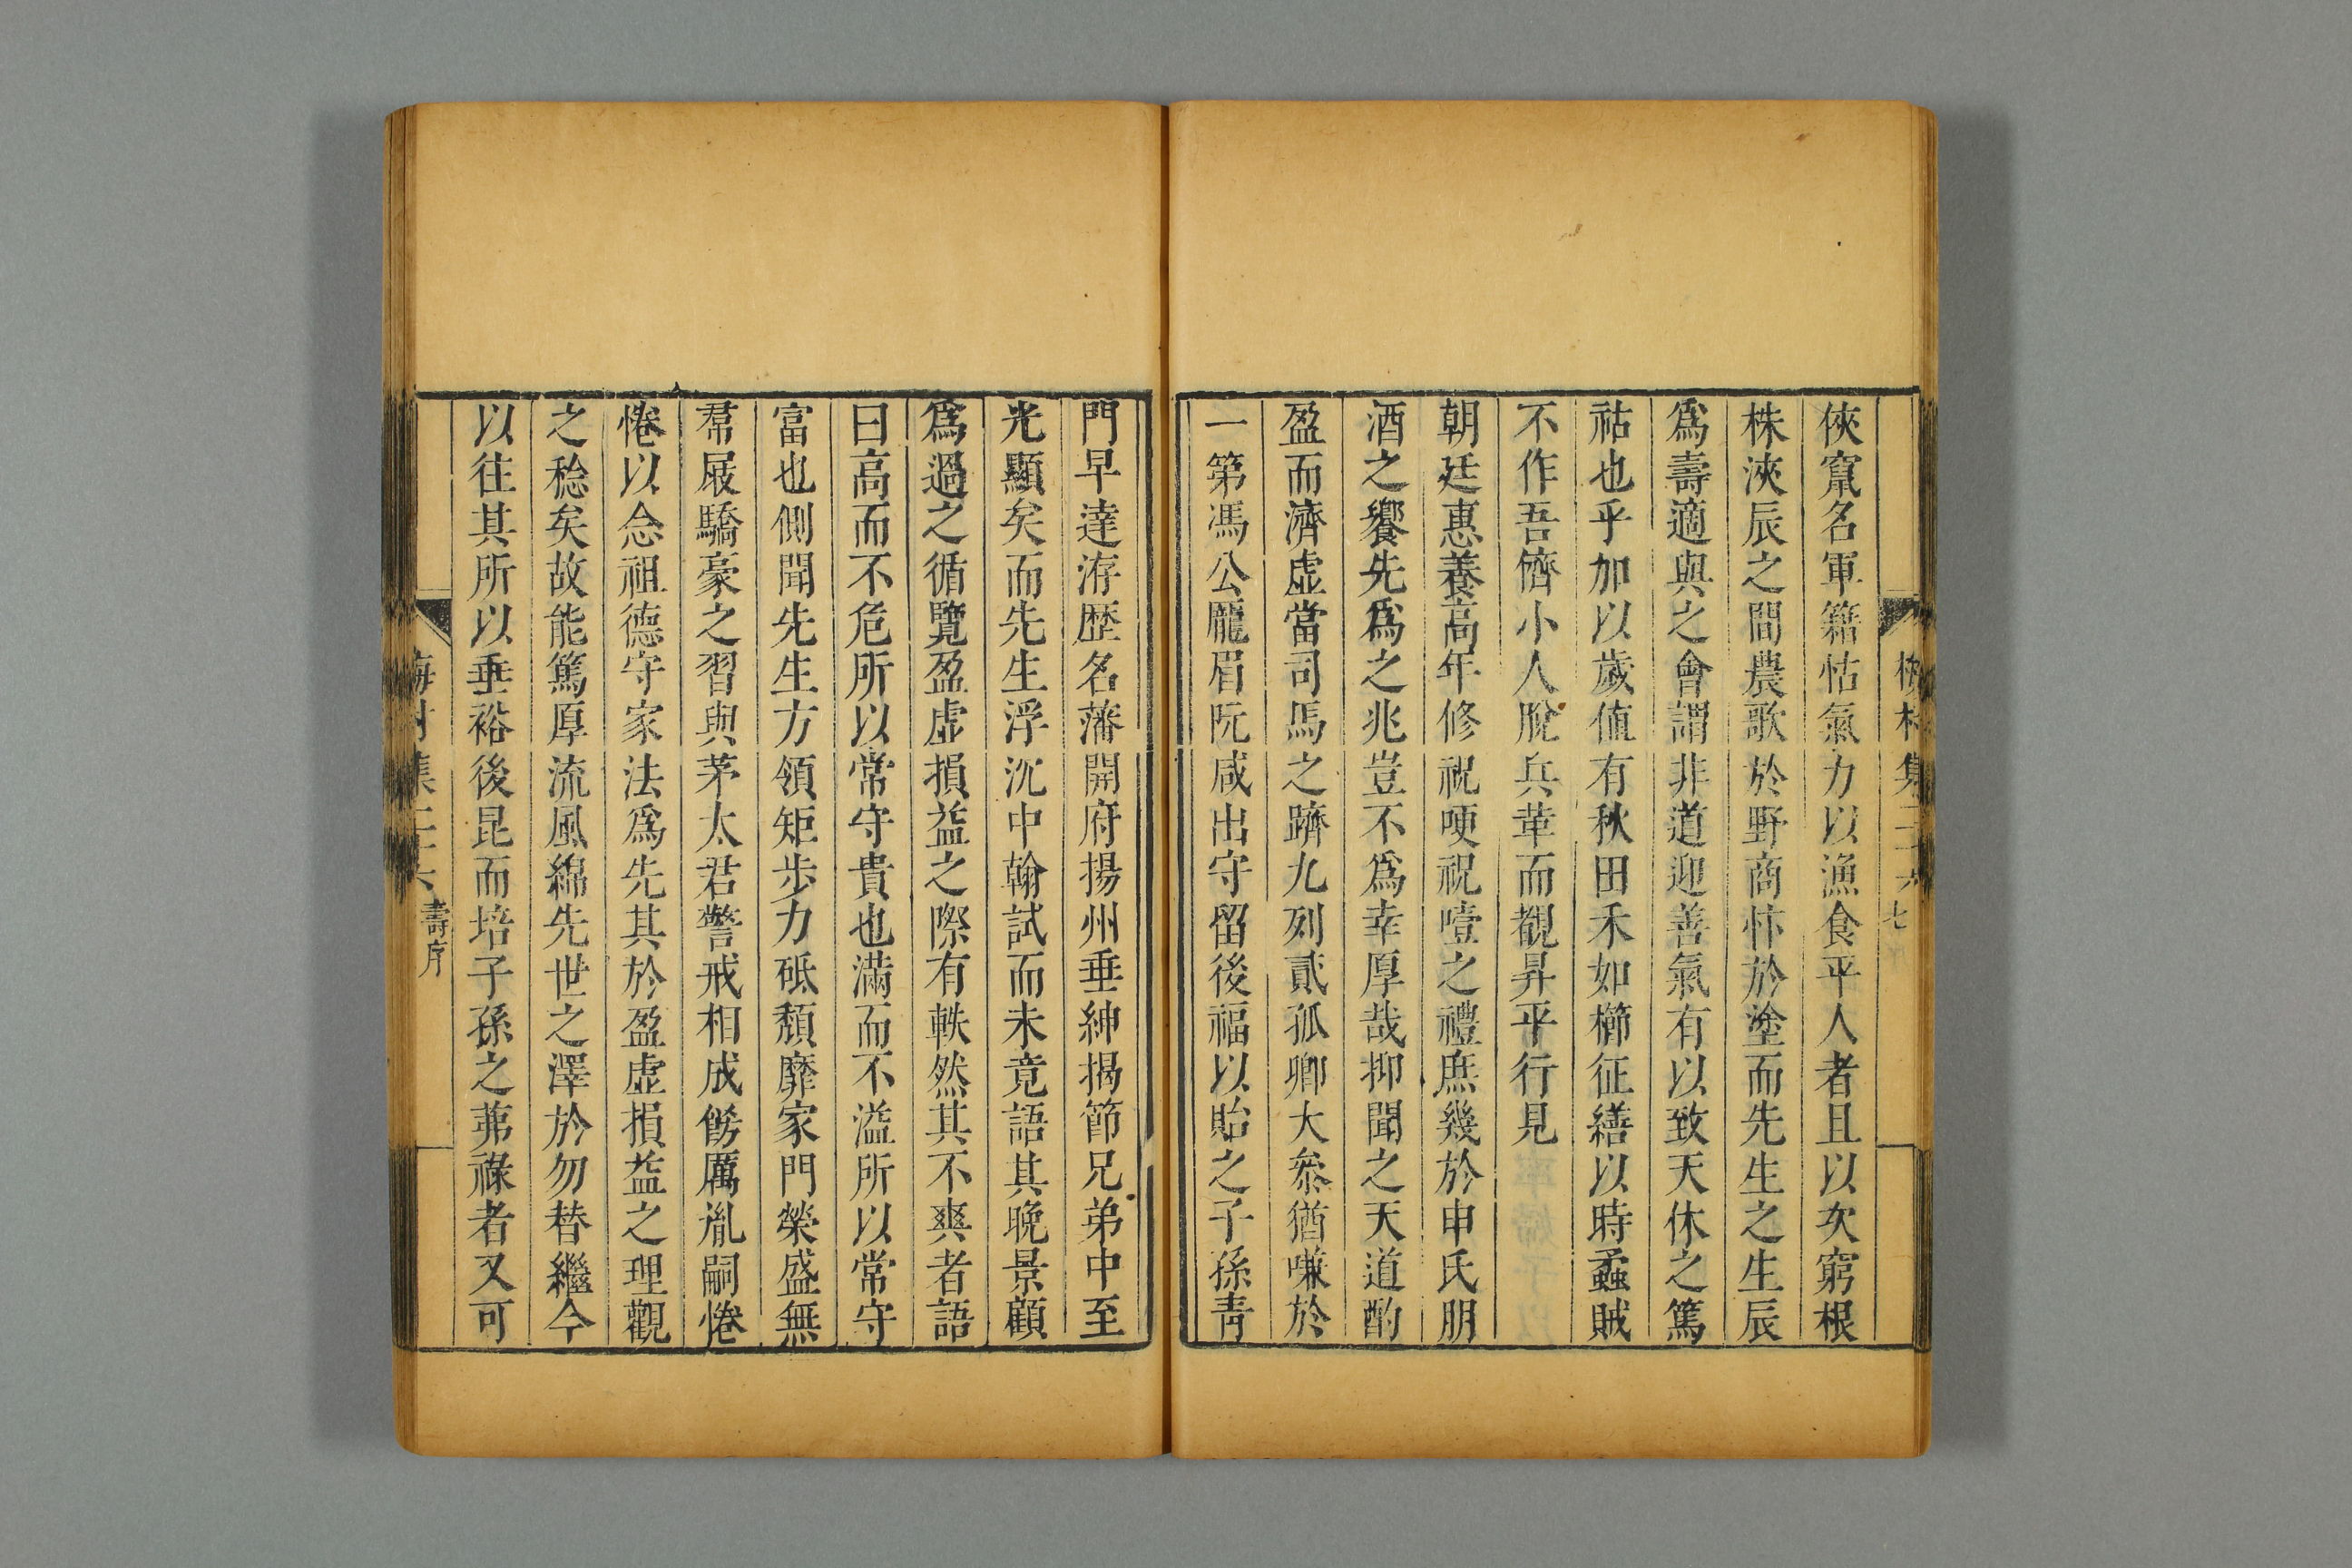 梅村集二十六
七
俠竄名軍籍怙氣力以漁食平人者且以次窮根
株浹辰之間農歌於野商忭於塗而先生之生辰
爲壽適與之會謂非道迎善氣有以致天休之篤
祜也乎加以歲值有秋田禾如櫛征繕以時蟊賊
不作吾儕小人脫兵革而覩昇平行見
朝廷惠養高年修祝哽祝噎之禮庶幾於申氏朋
酒之饗先爲之兆豈不爲幸厚哉抑聞之天道酌
盈而濟虛當司馬之躋九列貳孤卿大叅猶嗛於
一第馮公龐眉阮咸出守留後福以貽之子孫靑
門早達洊歴名藩開府揚州垂紳揭節兄弟中至
光顯矣而先生浮沉中翰試而未竟語其晚景顧
爲過之循覽盈虛損益之際有軼然其不爽者語
曰高而不危所以常守貴也滿而不溢所以常守
富也側聞先生方領矩步力砥頽靡家門榮盛無
帬屐驕豪之習與茅太君警戒相成餝厲胤嗣惓
惓以念祖德守家法爲先其於盈虛損益之理觀
之稔矣故能篤厚流風綿先世之澤於勿替繼今
以往其所以垂裕後昆而培子孫之茀祿者又可
梅村集二十六
壽序